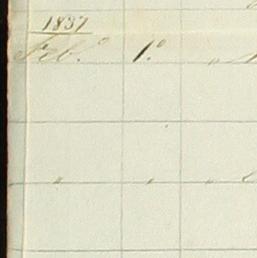 1837
Feb.° 1.° „
„ „ „